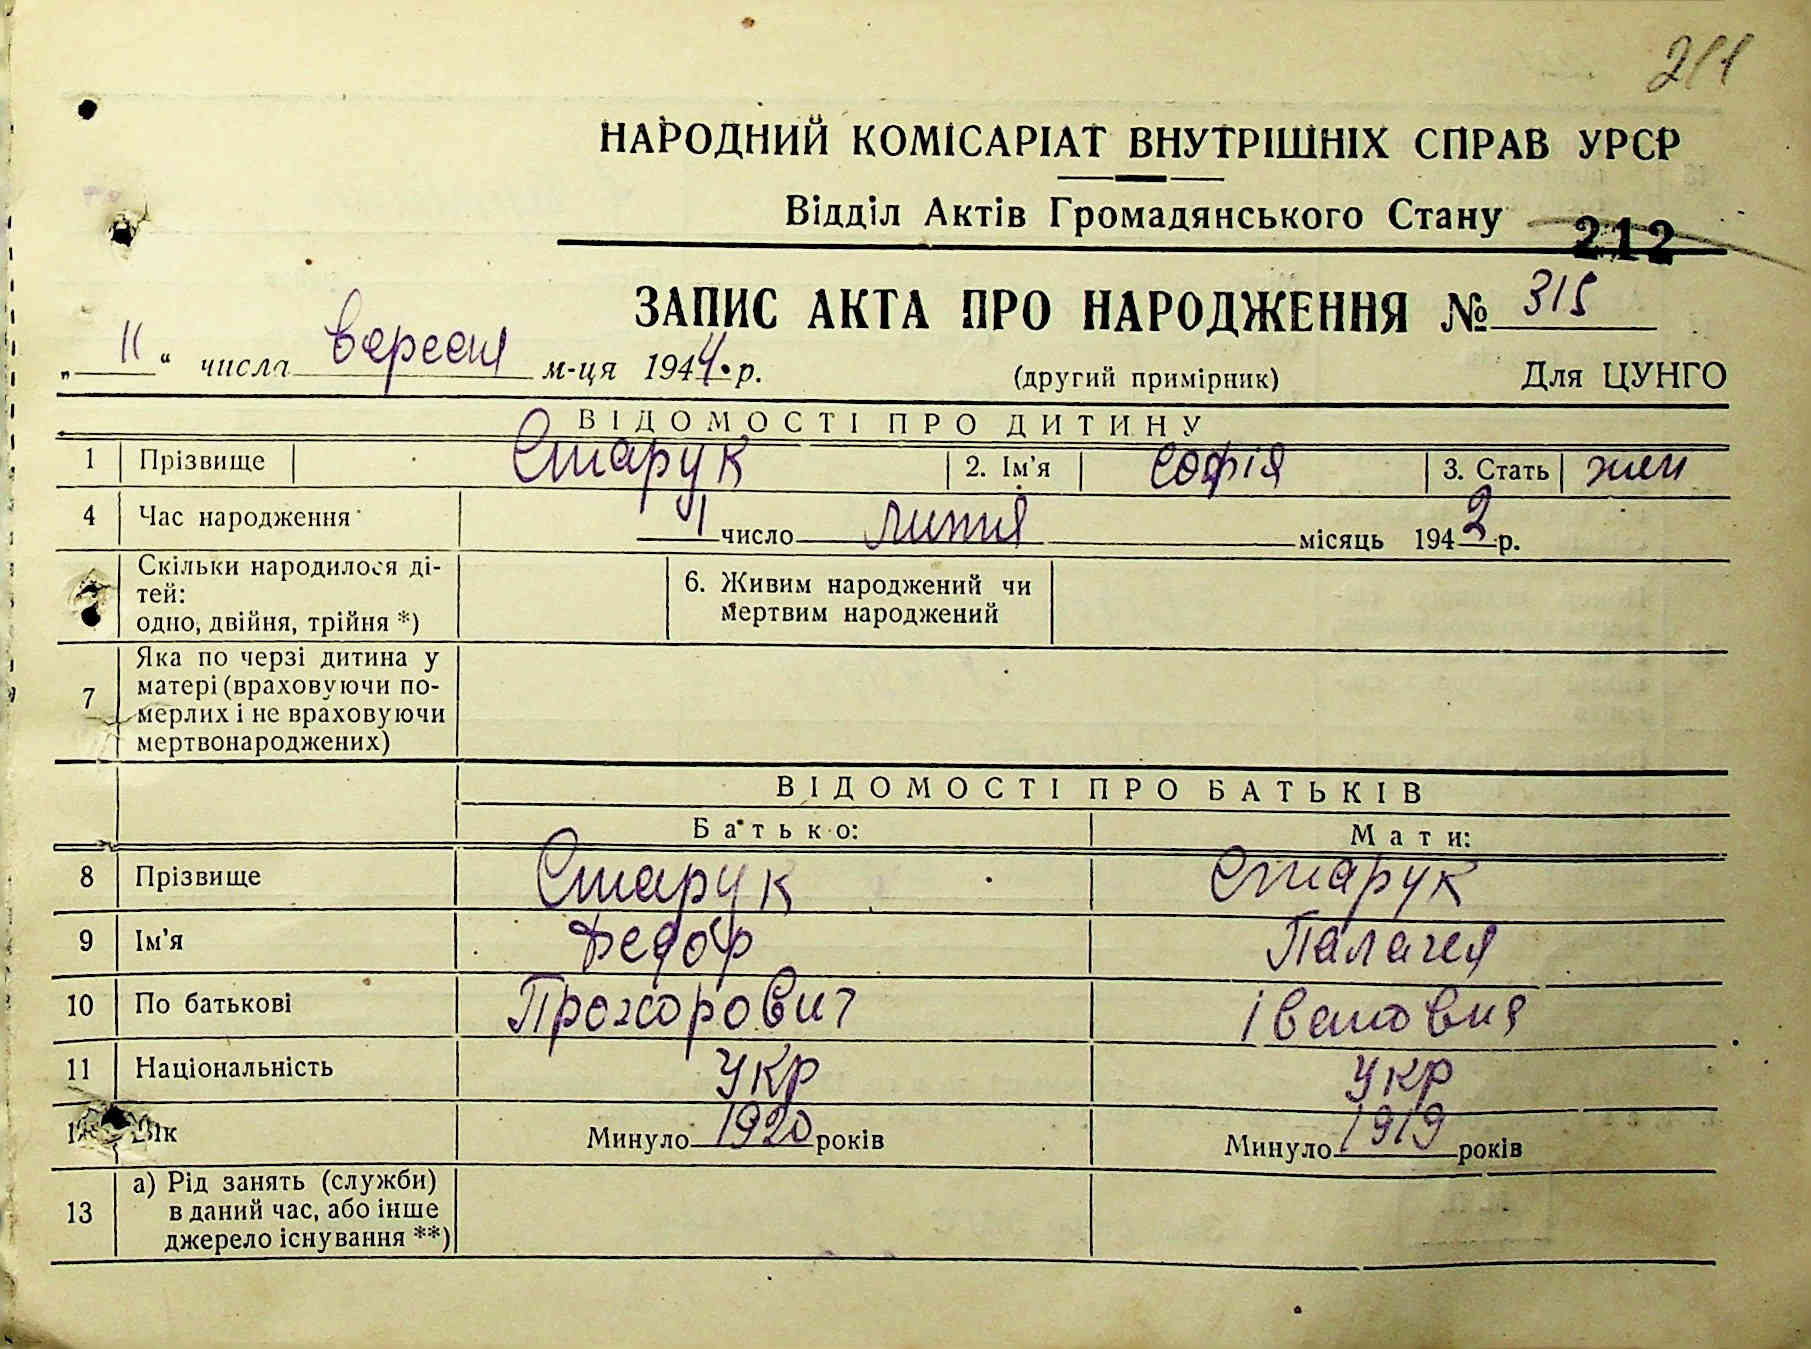 211
НАРОДНИЙ КОМІСАРІАТ ВНУТРІШНІХ СПРАВ УРСР
Відділ Актів Громадянського Стану
212
ЗАПИС АКТА ПРО НАРОДЖЕННЯ № 315
„ 11 “ числа вересня м-ця 1944 р. (другий примірник) Для ЦУНГО
ВІДОМОСТІ ПРО ДИТИНУ
1 Прізвище Старук 2. Ім'я Софія 3. Стать жен
4 Час народження 1 число липня місяць 1942 р.
Скільки народилося ді-
тей:
одно, двійня, трійня *)
6. Живим народжений чи
мертвим народжений
7 Яка по черзі дитина у
матері (враховуючи по-
мерлих і не враховуючи
мертвонароджених)
ВІДОМОСТІ ПРО БАТЬКІВ
Батько: Мати:
8 Прізвище Старук Старук
9 Ім'я Федор Палагея
10 По батькові Прохорович Івановня
11 Національність Укр Укр
Вік Минуло 1920 років Минуло 1919 років
13 а) Рід занять (служби)
в даний час, або інше
джерело існування **)